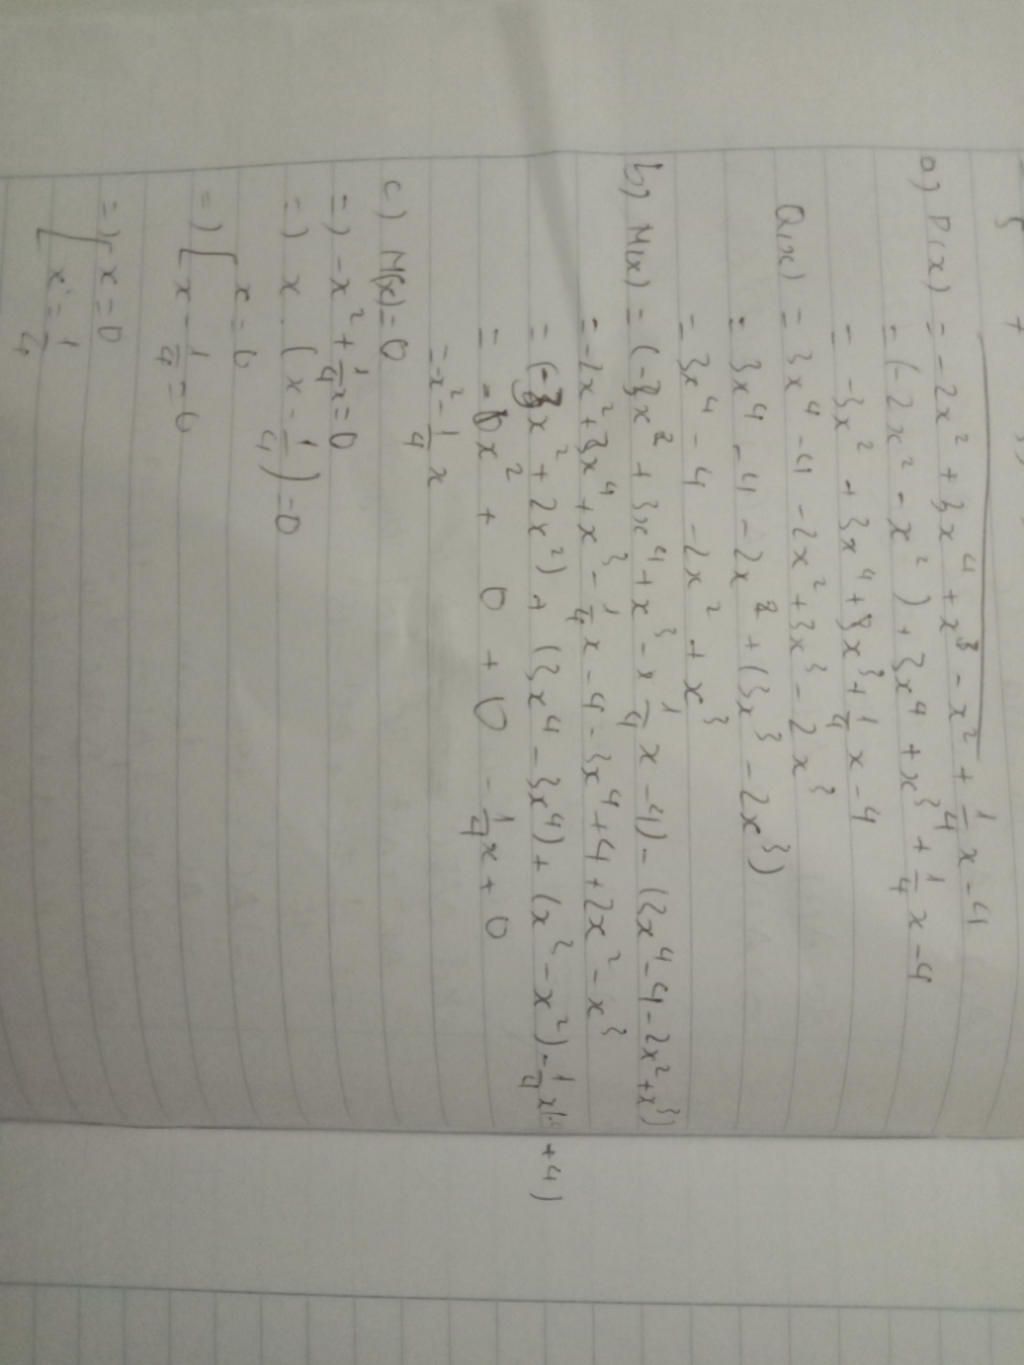 a) P(x) = -2x² + 3x⁴ + x³ - x² + 1/4 x - 4
= (-2x² - x²) + 3x⁴ + x³ + 1/4 x - 4
= -3x² + 3x⁴ + x³ + 1/4 x - 4
Q(x) = 3x⁴ - 4 - 2x² + 3x³ - 2x³
= 3x⁴ - 4 - 2x² + (3x³ - 2x³)
= 3x⁴ - 4 - 2x² + x³
b) M(x) = (-3x² + 3x⁴ + x³ - 1/4 x - 4) - (3x⁴ - 4 - 2x² + x³)
= -2x² + 3x⁴ + x³ - 1/4 x - 4 - 3x⁴ + 4 + 2x² - x³
= (-3x² + 2x²) + (3x⁴ - 3x⁴) + (x³ - x²) - 1/4 x + 4)
= x² + 0 + 0 - 1/4 x + 0
= -x² - 1/4 x
c) M(x) = 0
=) -x² + 1/4 x = 0
=) x . (x - 1/4) = 0
x = 0
=) [ x - 1/4 = 0
=) [ x = 0
x = 1/4